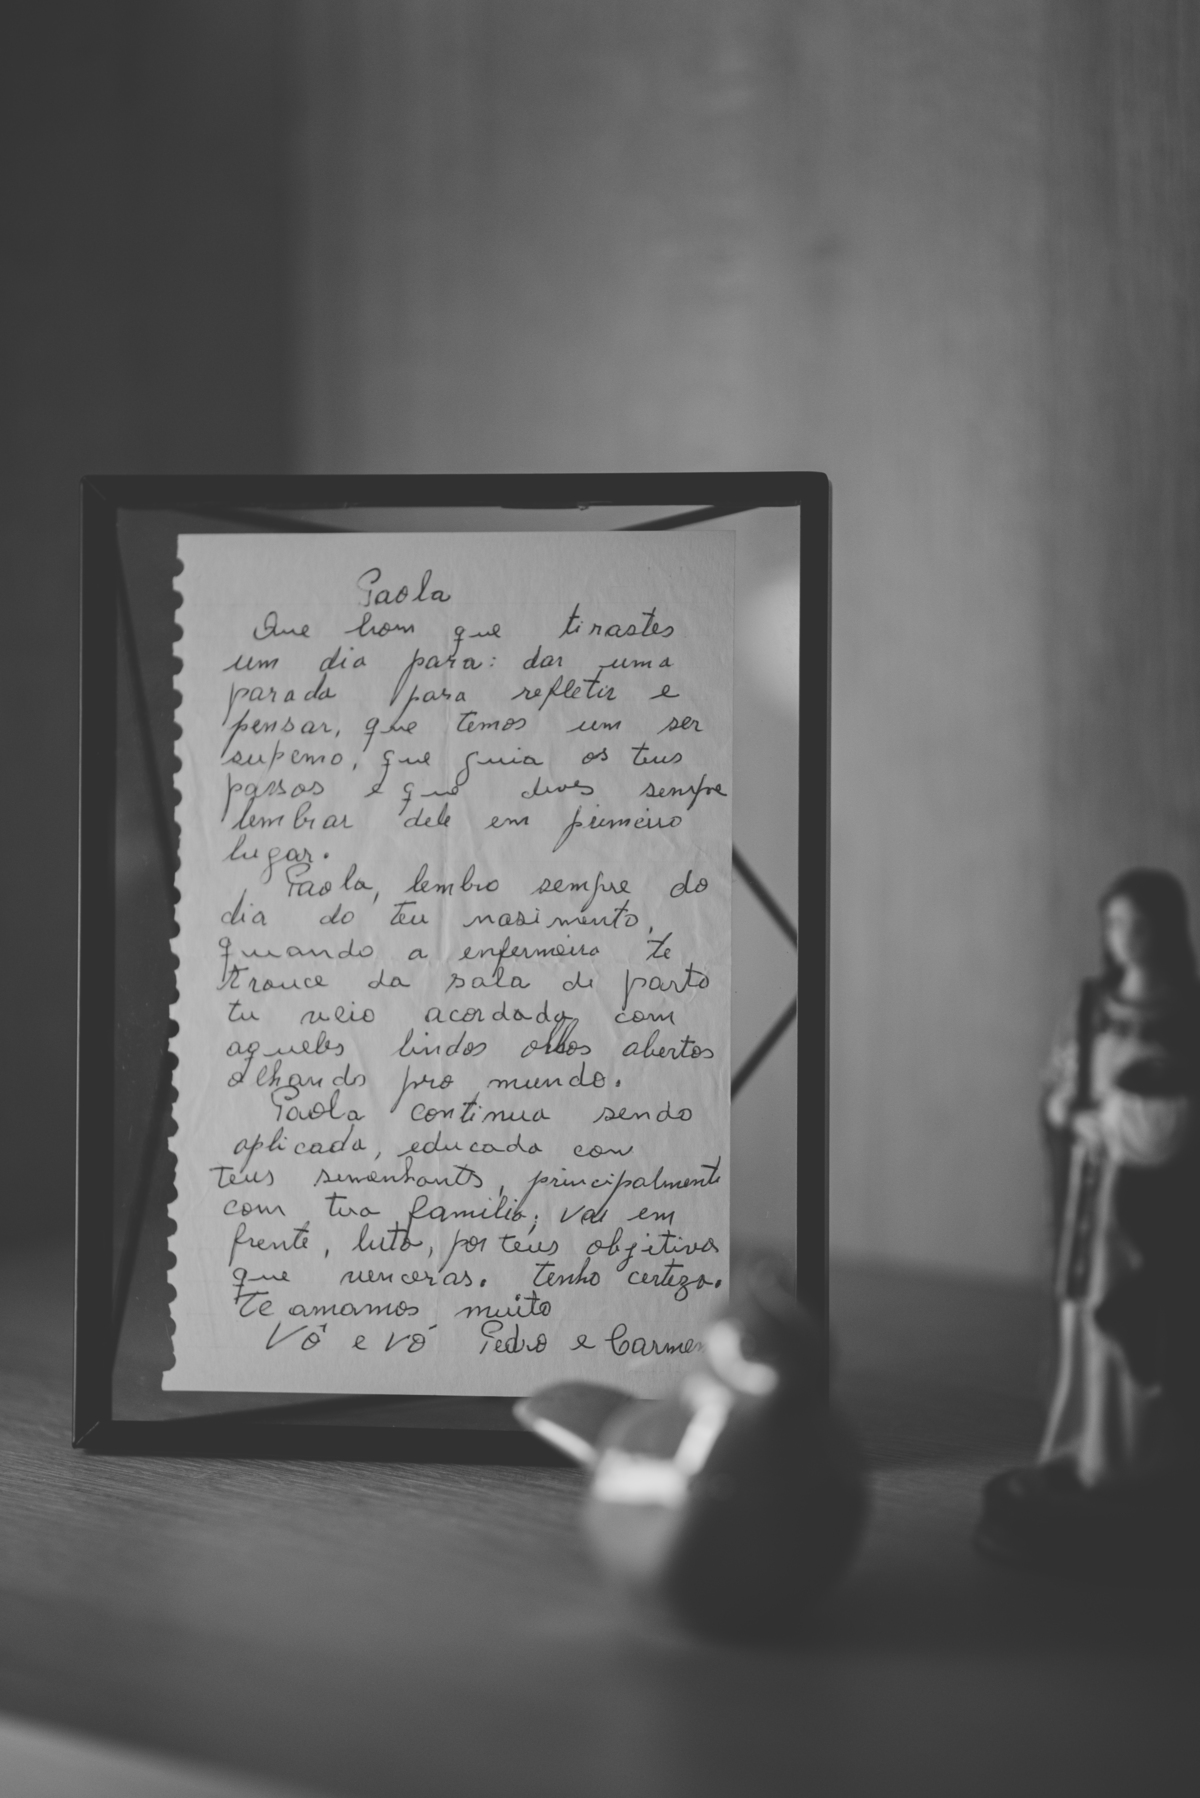 Paola
Que bom que tirastes
um dia para: dar uma
parada para refletir e
pensar, que temos um ser
supemo, que guia os teus
passos e que deves sempre
lembrar dele em primeiro
lugar.
Paola, lembro sempre do
dia do teu nasimento,
quando a enfermeira te
trouce da sala de parto
tu veio acordada com
aqueles lindos olhos abertos
olhando pro mundo.
Paola continua sendo
aplicada, educada com
teus semenhants, principalmente
com tua familia; vai em
frente, luta, por teus objitivos
que venceras. tenho certeza.
Te amamos muito
Vô e vó Pedro e Carmem